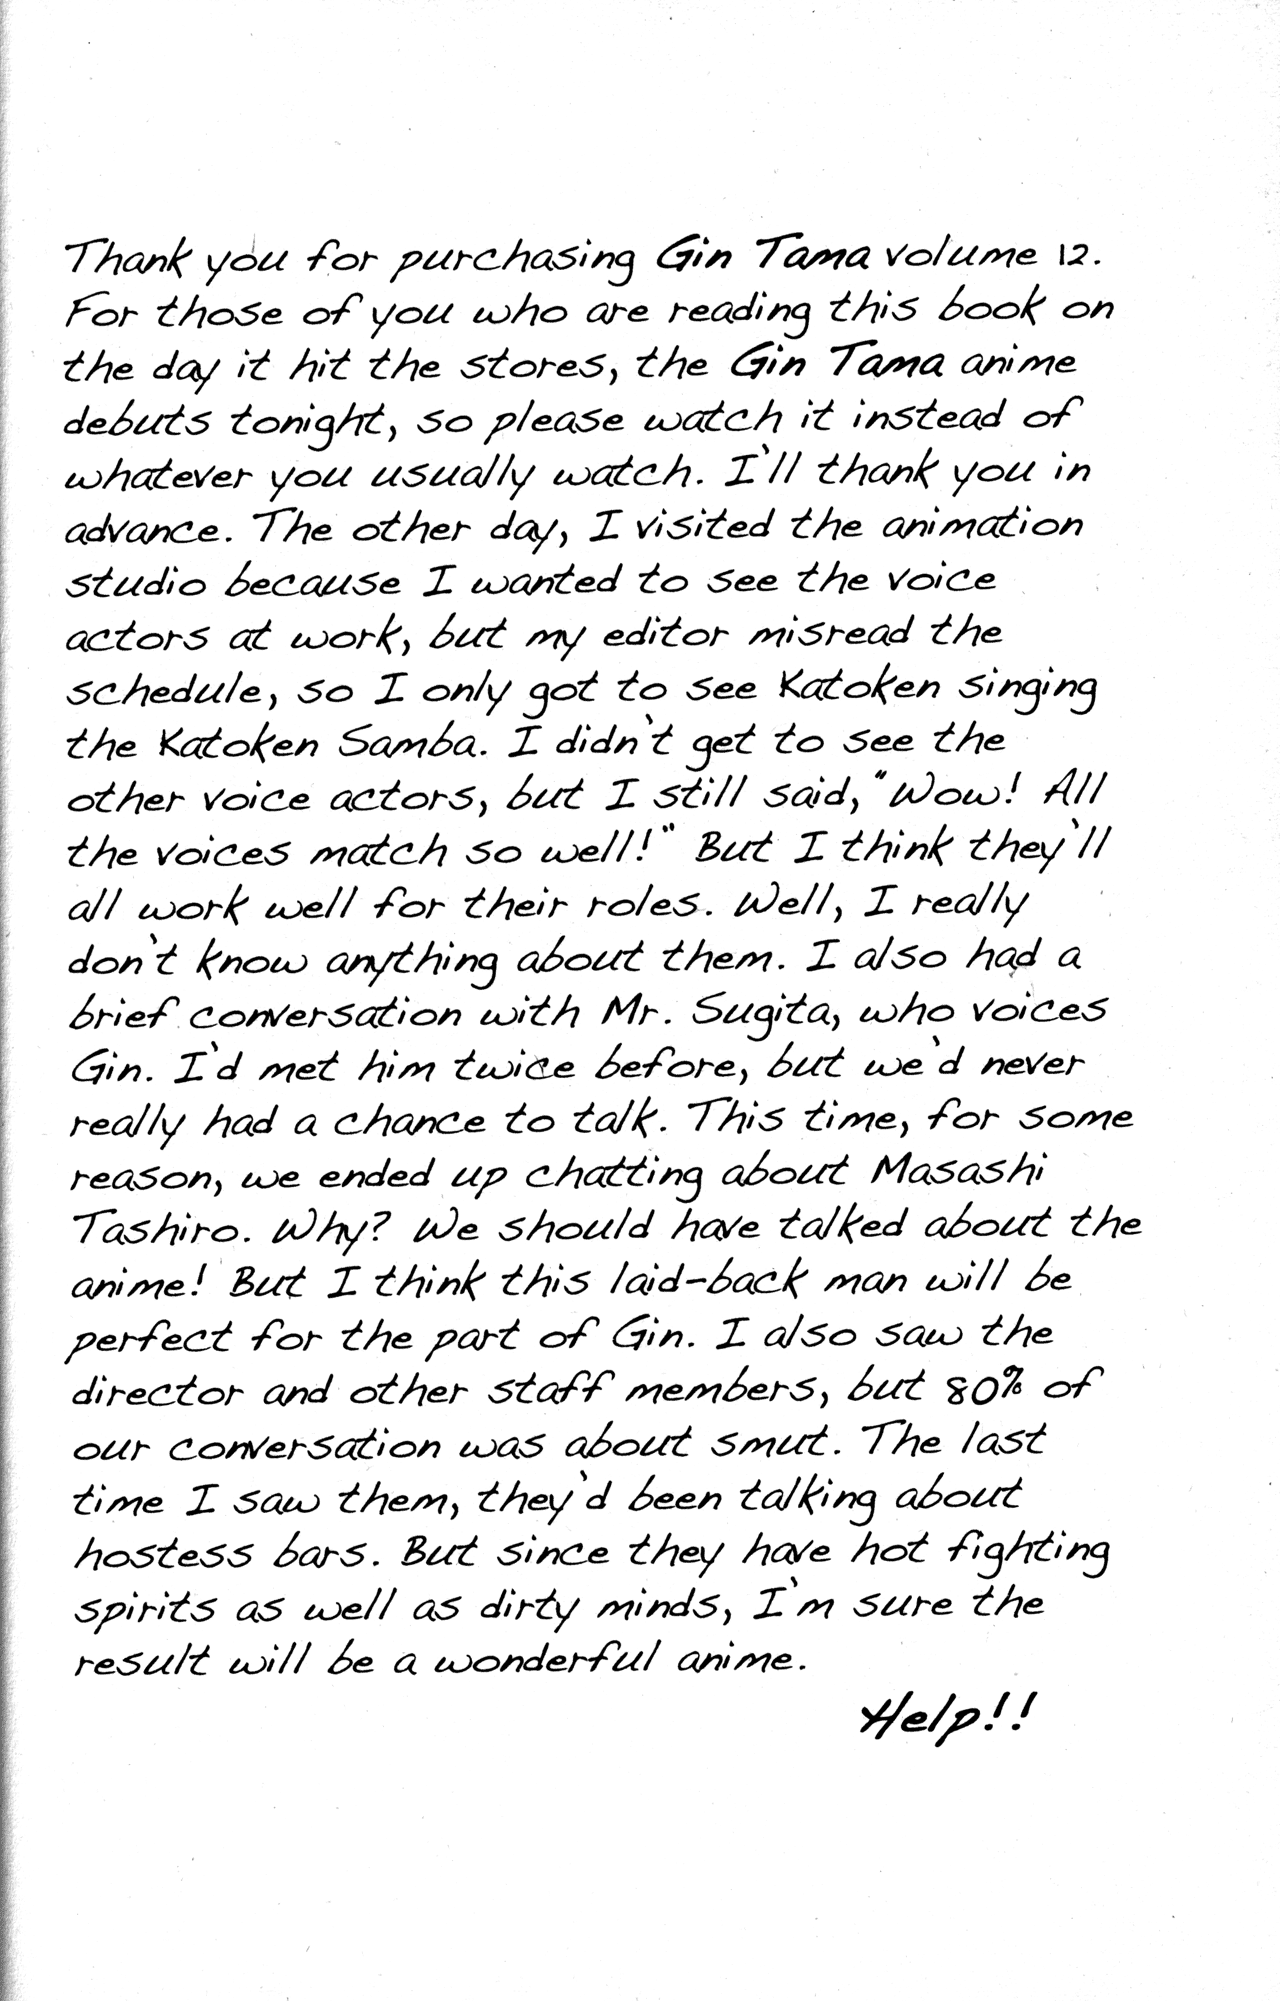 Thank you for purchasing Gin Tama volume 12.
For those of you who are reading this book on
the day it hit the stores, the Gin Tama anime
debuts tonight, so please watch it instead of
whatever you usually watch. I'll thank you in
advance. The other day, I visited the animation
studio because I wanted to see the voice
actors at work, but my editor misread the
schedule, so I only got to see Katoken singing
the Katoken Samba. I didn't get to see the
other voice actors, but I still said, "Wow! All
the voices match so well!" But I think they'll
all work well for their roles. Well, I really
don't know anything about them. I also had a
brief conversation with Mr. Sugita, who voices
Gin. I'd met him twice before, but we'd never
really had a chance to talk. This time, for some
reason, we ended up chatting about Masashi
Tashiro. Why? We should have talked about the
anime! But I think this laid-back man will be
perfect for the part of Gin. I also saw the
director and other staff members, but 80% of
our conversation was about smut. The last
time I saw them, they'd been talking about
hostess bars. But since they have hot fighting
spirits as well as dirty minds, I'm sure the
result will be a wonderful anime.
Help!!